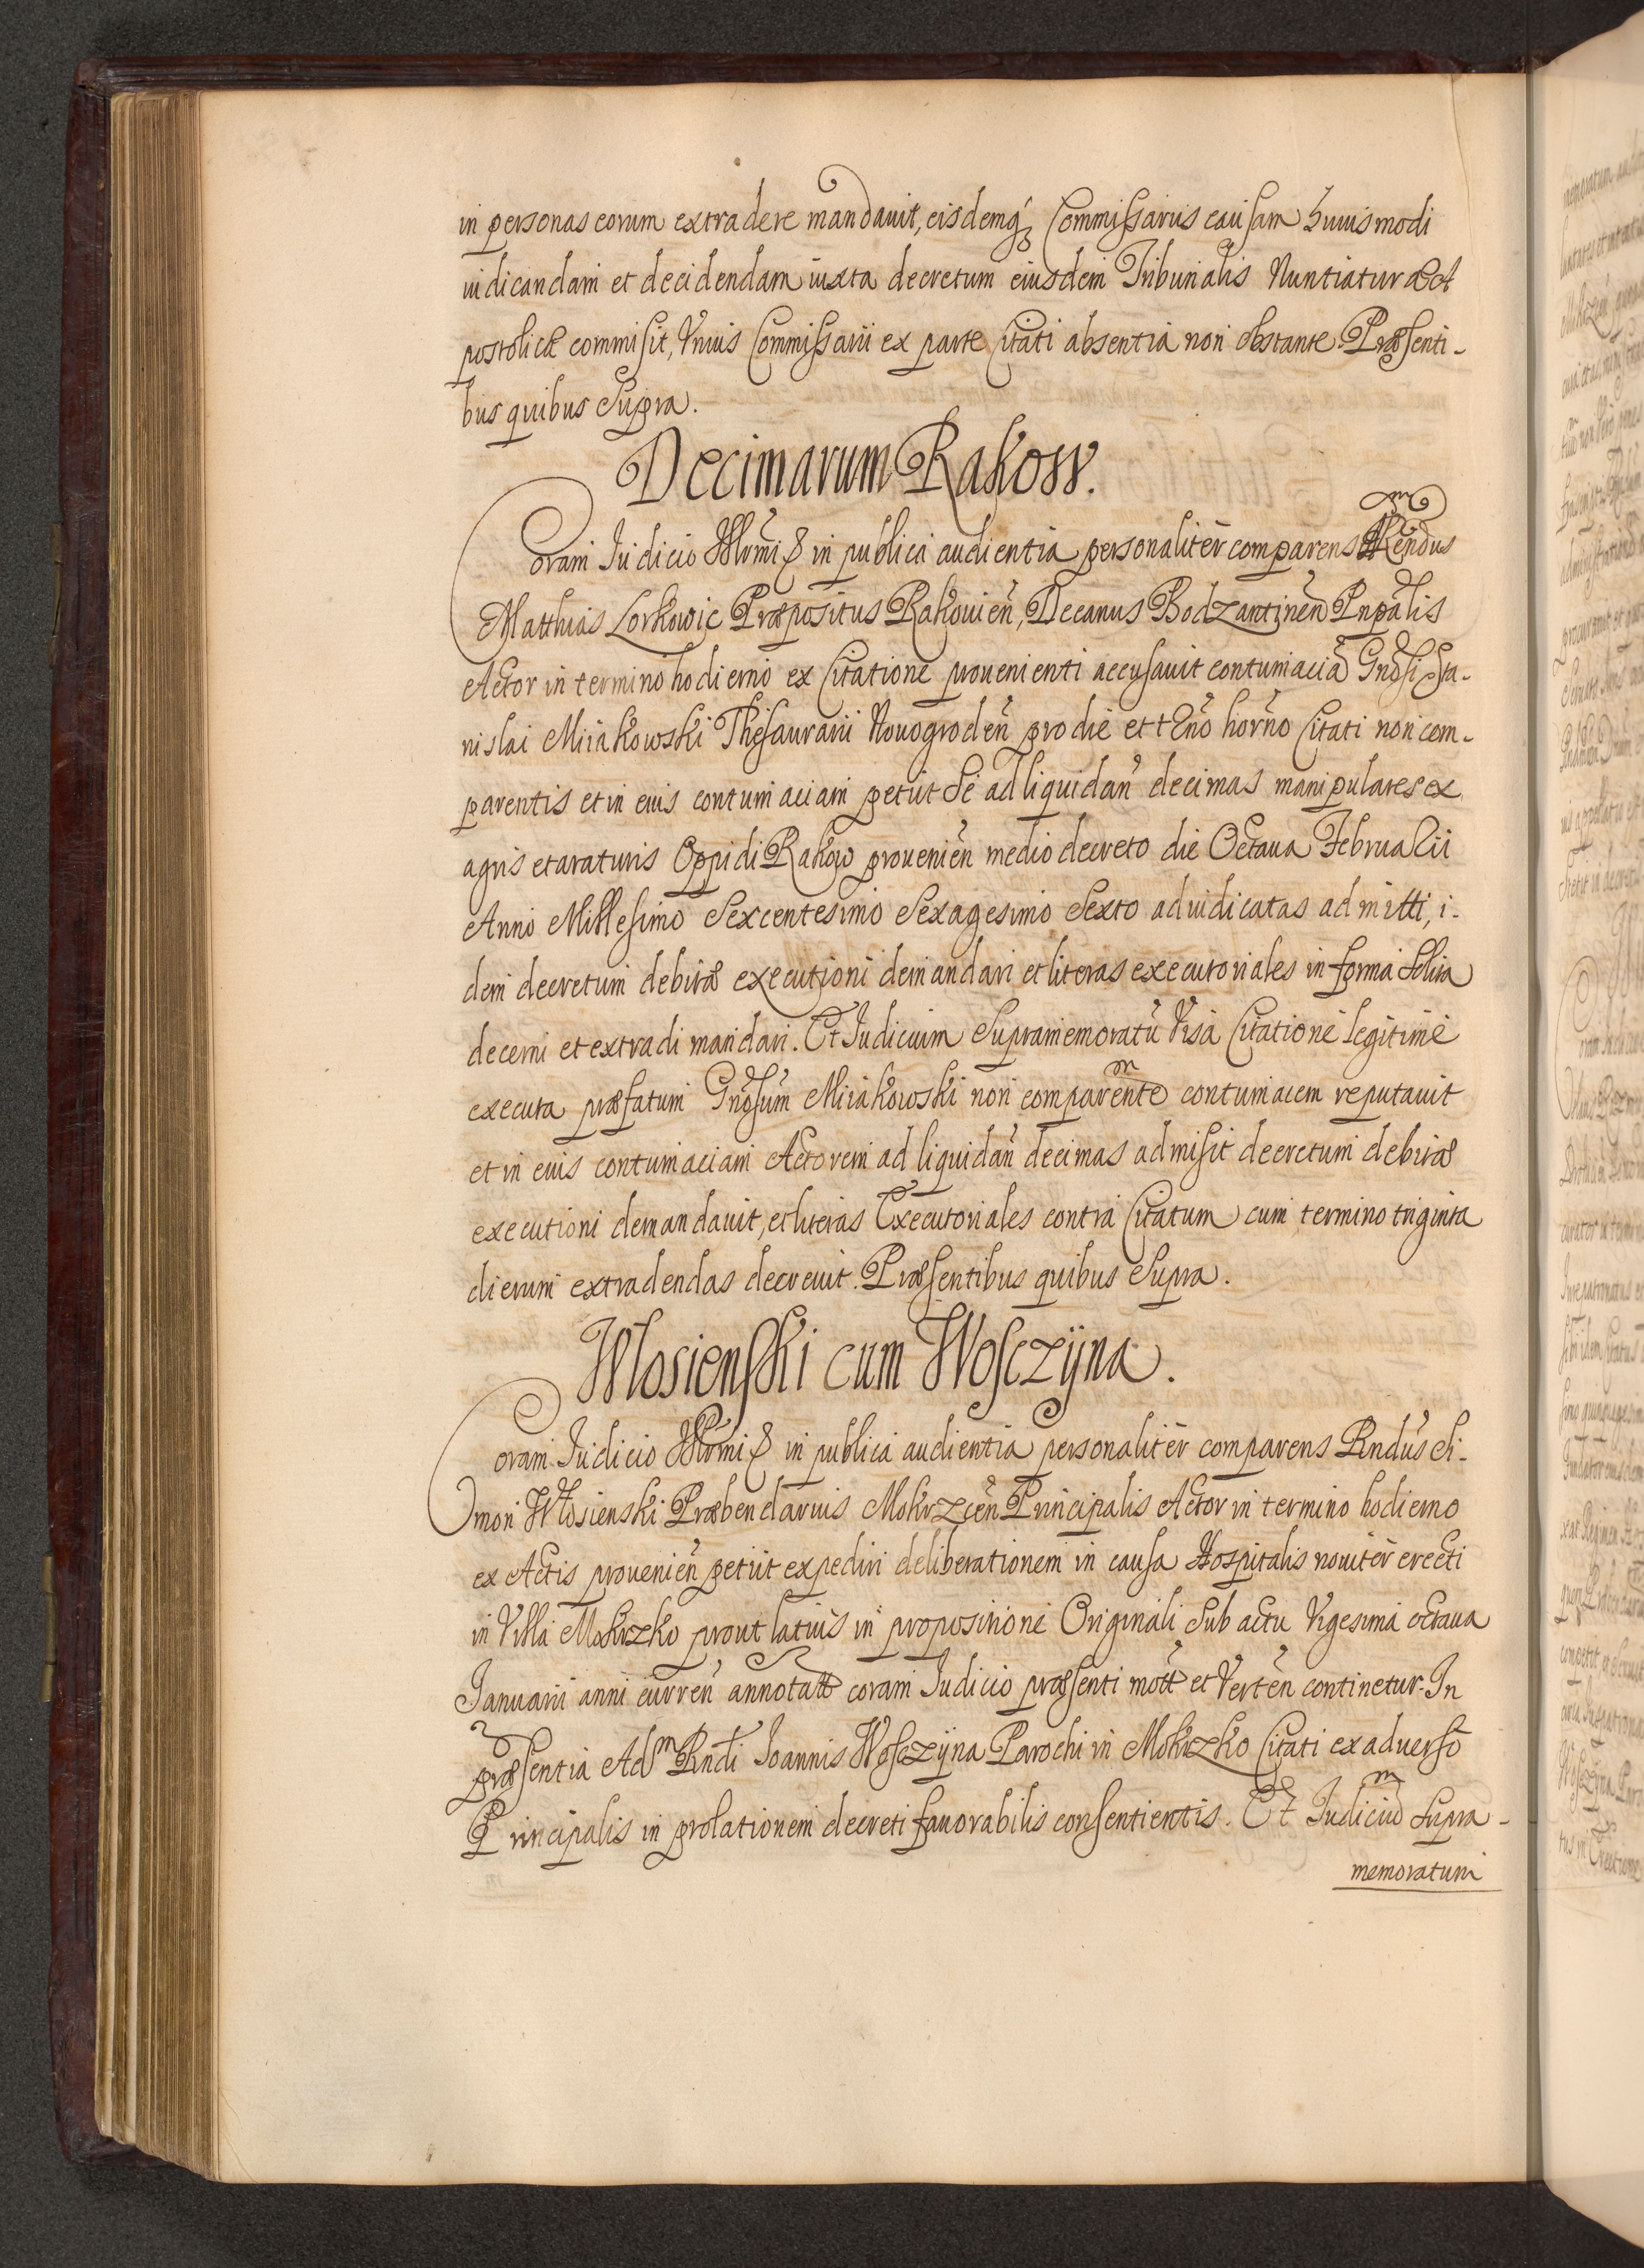 in personas eorum extradere mandauit, eisdemq₃ Commissarijs causam huiusmodi
iudicandam et decidendam iuxta decretum eiusdem Tribunalis Nuntiaturæ A
postolicæ commisit, Vnius Commissarii ex parte Citati absentia non obstante. Præsenti-
bus quibus Supra.
Decimarum Rakow.
Coram Iudicio Illrmiq in publica audientia personalitèr comparens Rendus
Matthias Lorkowic Præpositus Rakouien̄, Decanus Bodzantinen̄ Pnpalis
Actor in termino hodierno ex Citatione prouenienti accusauit contumaciā Gnosi Sta-
nislai Mirakowski Thesaurarii Nouogroden̄ pro die et tn̄o horn̄o Citati non com-
parentis et in eius contumaciam petiit Se ad liquidan̄ decimas manipulares ex
agris et araturis Oppidi Rakow prouenien̄ medio decreto die Octaua Februarii
Anno Millesimo Sexcentesimo Sexagesimo Sexto adiudicatas admitti, i-
dem decretum debitæ executioni demandari et literas executoriales in forma solita
decerni et extradi mandari. Et Iudicium Supramemoratū Visa Citatione legitimè
executa præfatum Gnosum Mirakowski non comparentē contumacem reputauit
et in eius contumaciam Actorem ad liquidan̄ decimas admisit decretum debitæ
executioni demandauit, et literas Executoriales contra Citatum cum termino triginta
dierum extradendas decreuit. Præsentibus quibus Supra.
Wlosienski cum Wosczÿna.
Coram Iudicio Illrmiq in publica audientia personalitèr comparens Rndus Si-
mon Wlosienski Præbendarius Mokrzcen̄ Principalis Actor in termino hodierno
ex Actis prouenien̄ petiit expediri deliberationem in causa Hospitalis nouitèr erecti
in Villa Mokrzko prout latius in propositione Originali Sub actu Vigesima octaua
Ianuarii anni curren̄ annotatæ coram Iudicio præsenti mott et Verten̄ continetur. In
præsentia Adm Rndi Ioannis Wosczÿna Parochi in Mokrzko Citati ex aduerso
Principalis in prolationem decreti fauorabilis consentientis. Et Iudiciū supra-
memoratum